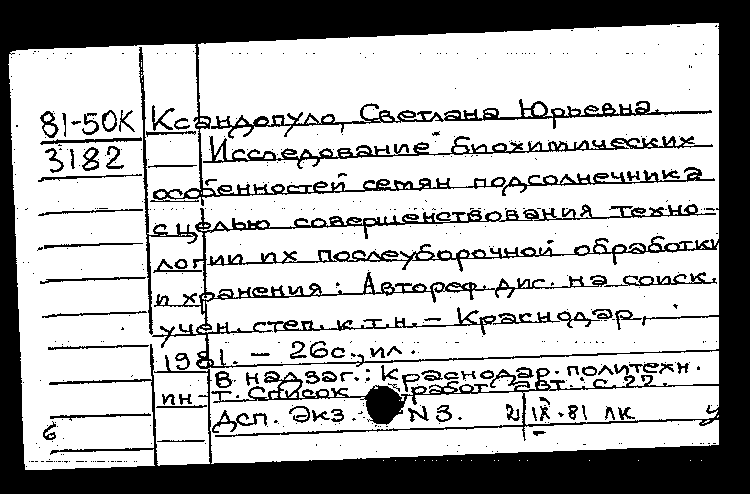 81-50К
3182
Ксандопуло, Светлана Юрьевна.
Исследование биохимических
особенностей семян подсолнечника
с целью совершенствования техно-
логии их послеуборочной обработки
и хранения: Автореф. дис. на соиск.
учен. степ. к.т.н. – Краснодар,
1981. – 26с., ил.
В надзаг.: Краснодар. политехн.
ин-т. Список работ авт.: с.22.
ДСП. Экз. N3.
IX.81 ЛК
6